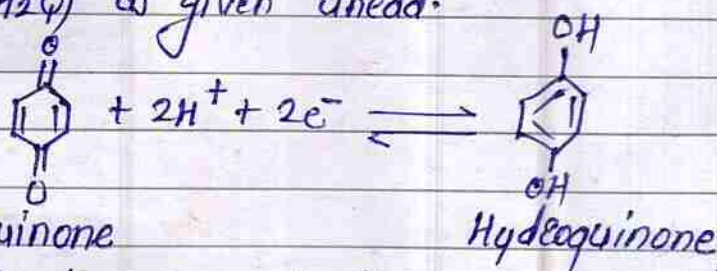 H2Q) as given ahead.
O OH
+ 2H⁺ + 2e⁻ ⇌
O OH
uinone Hydroquinone